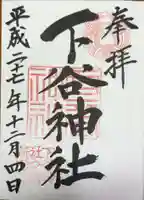 奉拝
下谷神社
平成二七年十二月四日